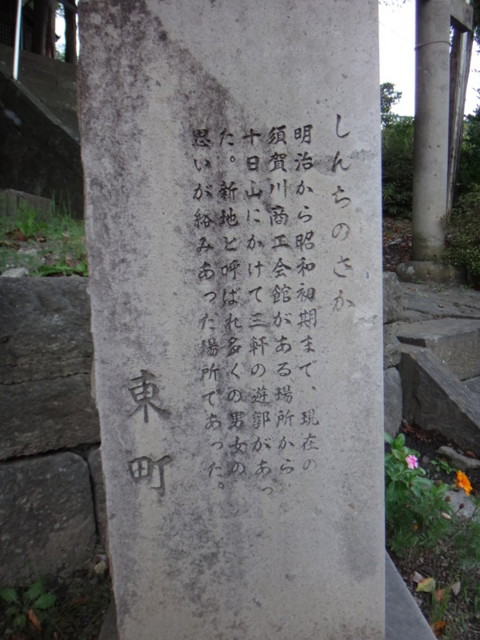 しんちのさか
明治から昭和初期まで、現在の
須賀川商工会館がある場所から、
十日山にかけて三軒の遊郭があっ
た。新地と呼ばれ多くの男女の
思いが絡みあった場所であった。
東町